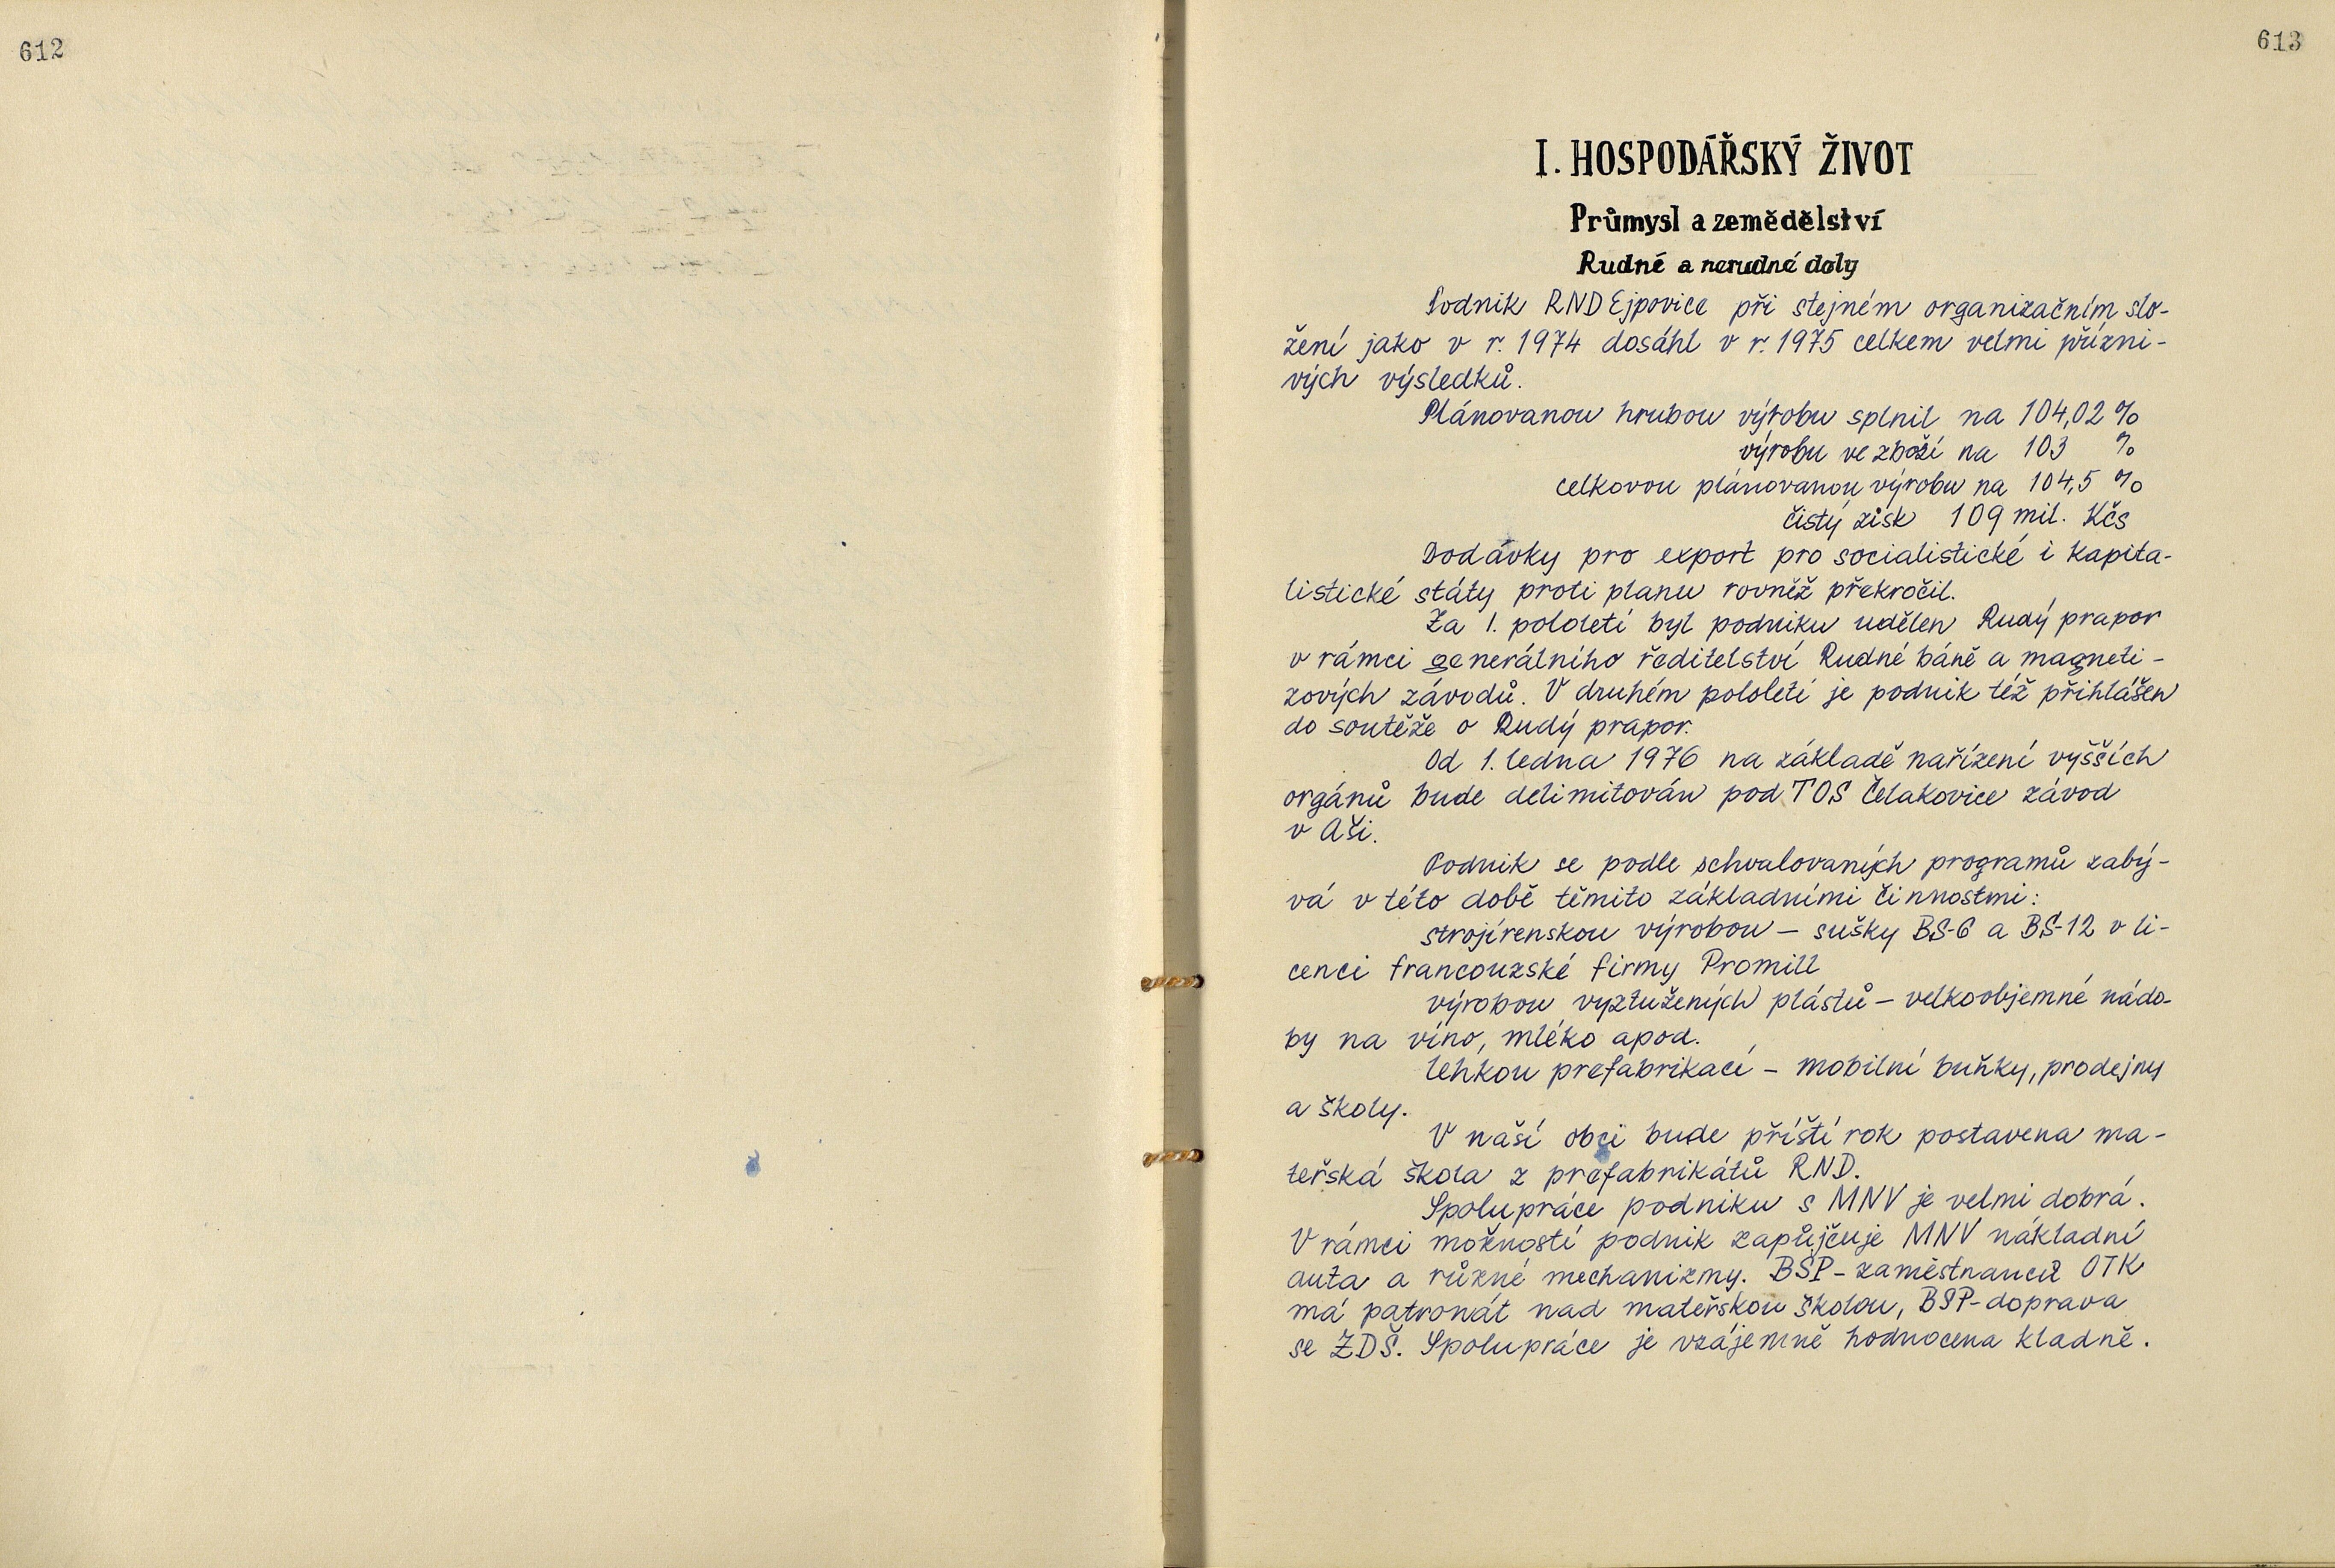 612
613
I. HOSPODÁŘSKÝ ŽIVOT
Průmysl a zemědělství
Rudné a nerudné doly
Podnik RND Ejpovice při stejném organizačním slo-
žení jako v r. 1974 dosáhl v r. 1975 celkem velmi přízni-
vých výsledků.
Plánovanou hrubou výrobu splnil na 104,02 %
výrobu ve zboží na 103 %
celkovou plánovanou výrobu na 104,5 %
čistý zisk 109 mil. Kčs
Dodávky pro export pro socialistické i kapita-
listické státy proti planu rovněž překročil.
Za 1. pololetí byl podniku udělen Rudý prapor
v rámci generálního ředitelství Rudné báně a magneti-
zových závodů. V druhém pololetí je podnik též přihlášen
do soutěže o Rudý prapor.
Od 1. ledna 1976 na základě nařízení vyšších
orgánů bude delimitován pod TOS Čelakovice závod
v Aši.
Podnik se podle schvalovaných programů zabý-
vá v této době těmito základními činnostmi:
strojírenskou výrobou - sušky BS-6 a BS-12 v li-
cenci francouzské firmy Promill
výrobou vyztužených plástů - velkoobjemné nádo-
by na víno, mléko apod.
lehkou prefabrikací - mobilní buňky, prodejny
a školy.
V naší obci bude příští rok postavena ma-
teřská škola z prefabrikátů RND.
Spolupráce podniku s MNV je velmi dobrá.
V rámci možností podnik zapůjčuje MNV nákladní
auta a různé mechanizmy. BSP - zaměstnanců OTK
má patronát nad mateřskou školou, BSP - doprava
se ZDŠ. Spolupráce je vzájemně hodnocena kladně.